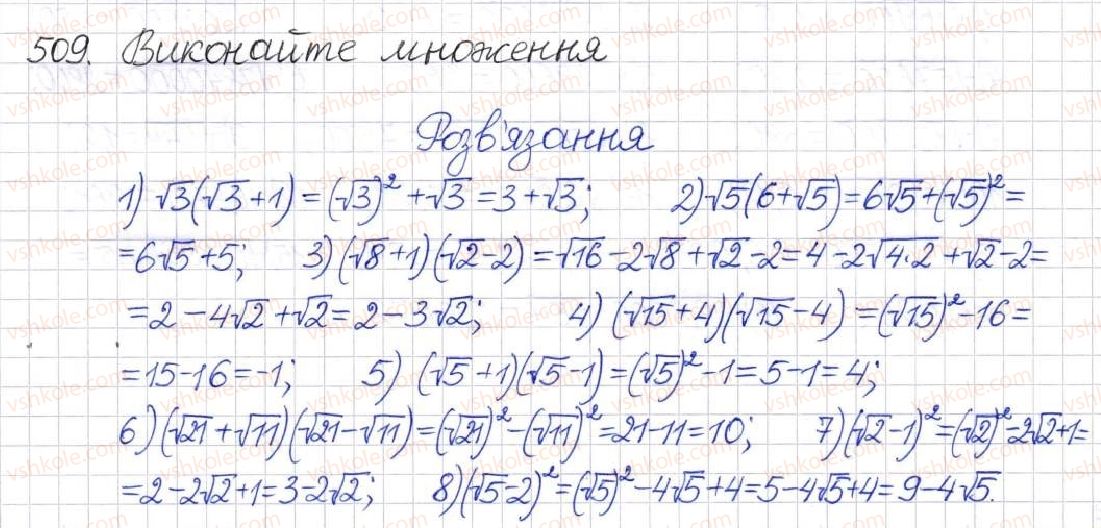 509. Виконайте множення
Розв'язання
1) √3(√3+1) = (√3)² + √3 = 3 + √3; 2) √5(6+√5) = 6√5 + (√5)² =
= 6√5 + 5; 3) (√8+1)(√2-2) = √16 - 2√8 + √2 - 2 = 4 - 2√4·2 + √2 - 2 =
= 2 - 4√2 + √2 = 2 - 3√2; 4) (√15+4)(√15-4) = (√15)² - 16 =
= 15 - 16 = -1; 5) (√5+1)(√5-1) = (√5)² - 1 = 5 - 1 = 4;
6) (√21+√11)(√21-√11) = (√21)² - (√11)² = 21 - 11 = 10; 7) (√2-1)² = (√2)² - 2√2 + 1 =
= 2 - 2√2 + 1 = 3 - 2√2; 8) (√5-2)² = (√5)² - 4√5 + 4 = 5 - 4√5 + 4 = 9 - 4√5.